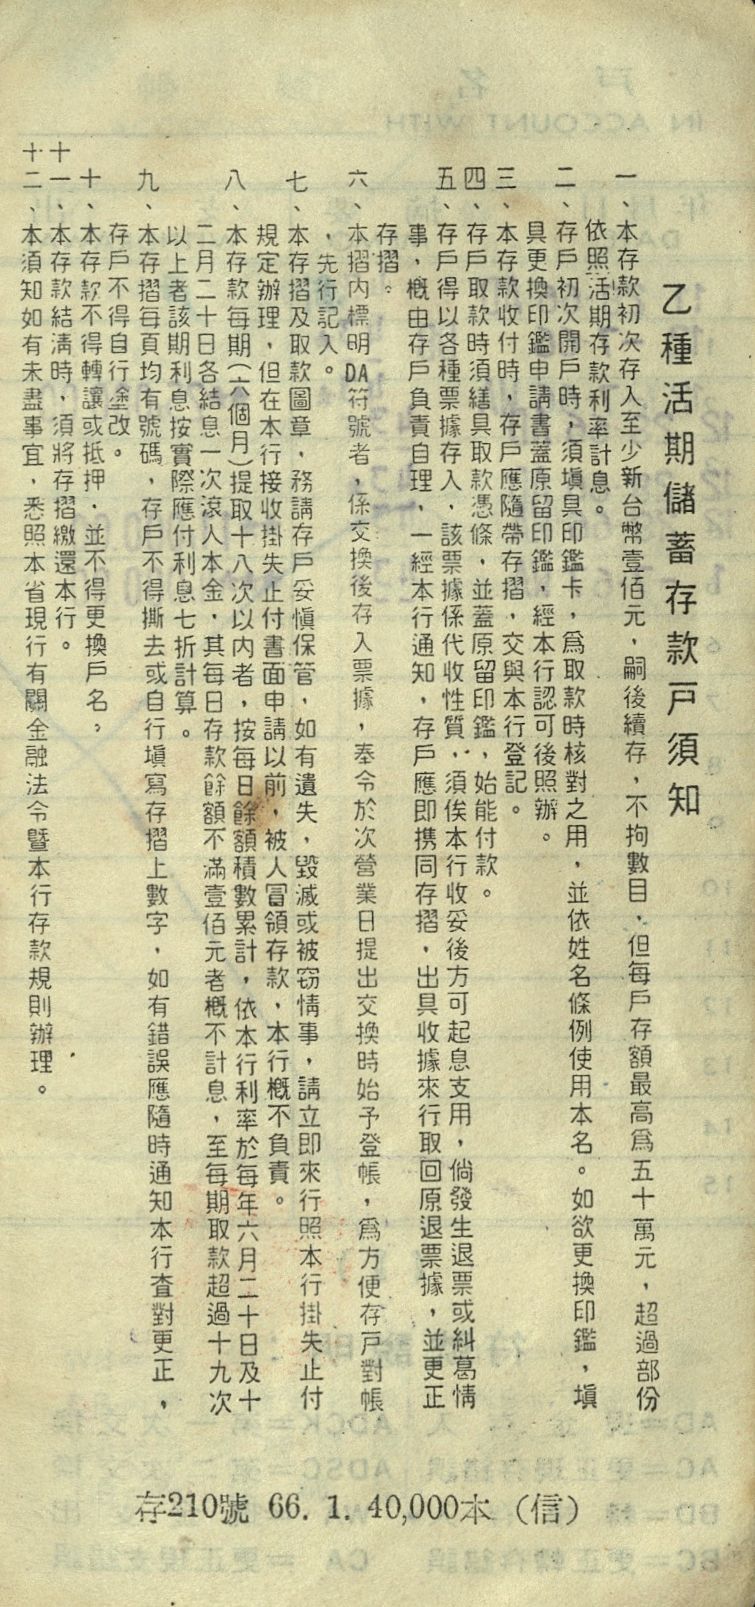 乙種活期儲蓄存款戶須知
一、本存款初次存入至少新台幣壹佰元，嗣後續存，不拘數目，但每戶存額最高爲五十萬元，超過部份
依照活期存款利率計息。
二、存戶初次開戶時，須塡具印鑑卡，爲取款時核對之用，並依姓名條例使用本名。如欲更換印鑑，塡
具更換印鑑申請書蓋原留印鑑，經本行認可後照辦。
三、本存款收付時，存戶應隨帶存摺，交與本行登記。
四、存戶取款時須繕具取款憑條，並蓋原留印鑑，始能付款。
五、存戶得以各種票據存入，該票據係代收性質，須俟本行收妥後方可起息支用，倘發生退票或糾葛情
事，槪由存戶負責自理，一經本行通知，存戶應即携同存摺，出具收據來行取回原退票據，並更正
存摺。
六、本摺內標明DA符號者，係交換後存入票據，奉令於次營業日提出交換時始予登帳，爲方便存戶對帳
，先行記入。
七、本存摺及取款圖章，務請存戶妥愼保管，如有遺失，毀滅或被窃情事，請立即來行照本行掛失止付
規定辦理，但在本行接收掛失止付書面申請以前，被人冒領存款，本行槪不負責。
八、本存款每期(六個月)提取十八次以內者，按每日餘額積數累計，依本行利率於每年六月二十日及十
二月二十日各結息一次滾入本金，其每日存款餘額不滿壹佰元者槪不計息，至每期取款超過十九次
以上者該期利息按實際應付利息七折計算。
九、本存摺每頁均有號碼，存戶不得撕去或自行塡寫存摺上數字，如有錯誤應隨時通知本行查對更正，
存戶不得自行塗改。
十、本存款不得轉讓或抵押，並不得更換戶名。
十一、本存款結淸時，須將存摺繳還本行。
十二、本須知如有未盡事宜，悉照本省現行有關金融法令暨本行存款規則辦理。
存210號 66. 1. 40,000本（信）